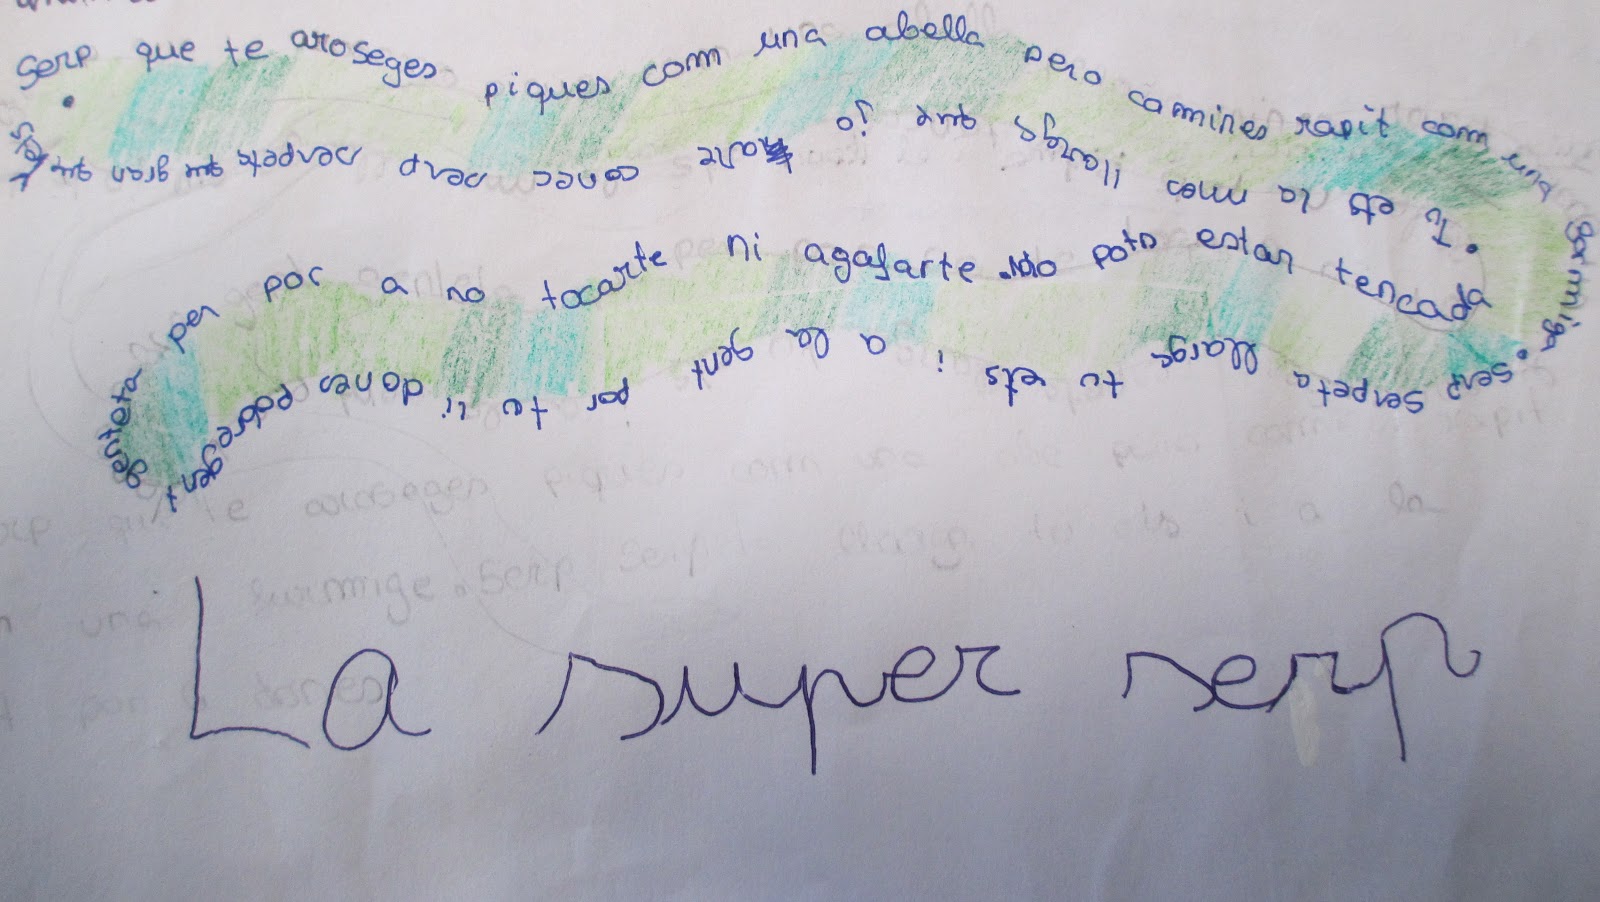 serp que te aroseges piques com una abella pero camines rapit com una formiga.
serp serpeta llarga tu ets i a la gent por tu li dones pobre gent
genteta per por a no tocarte ni agafarte. No pots estar tencada.
Tu ets la mes llarga que jo conec serp serpeta que gran que ets
La super serp